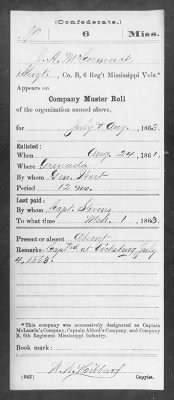 (Confederate.)
6 Miss.
J. A. McCormack
, Co. B, 6 Reg't Mississippi Vols.*
Appears on
Company Muster Roll
of the organization named above,
for July & Aug, 1863.
Enlisted:
When Aug. 24, 1861.
Where Grenada
By whom Gen. West
Period 12 mo.
Last paid:
By whom Capt.
To what time Mch. 1, 1863.
Present or absent Absent
Remarks: Capt'd at Vicksburg July
4, 1863.
*This company was successively designated as Captain
McLaurin's Company, Captain Alford's Company, and Company
B, 6th Regiment Mississippi Infantry.
Book mark:
(642) Copyist.